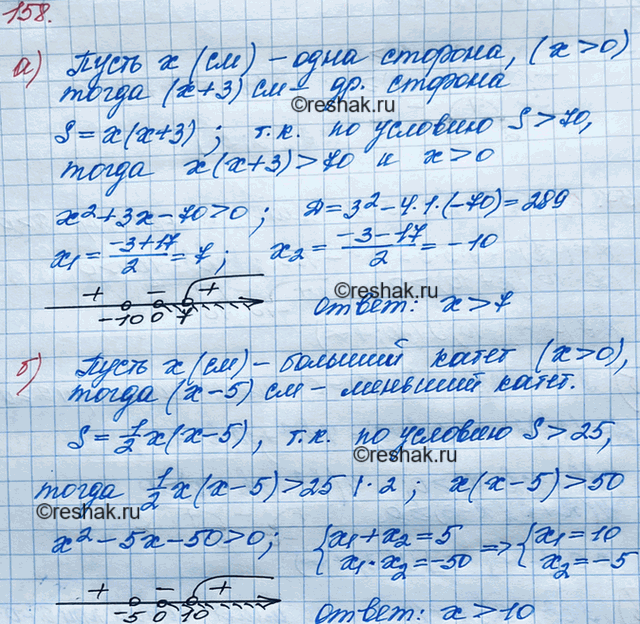 158.
а) Пусть x (см) – одна сторона, (x>0)
тогда (x+3) см – др. сторона
©reshak.ru
S=x(x+3) ; т.к. по условию S>70,
тогда x(x+3)>70 и x>0
x²+3x-70>0; D=3²-4·1·(-70)=289
x₁=(-3+17)/2=7; x₂=(-3-17)/2=-10
+ - +
-10 0 7
©reshak.ru
ответ: x>7
б) Пусть x (см) – больший катет (x>0),
тогда (x-5) см – меньший катет.
S=1/2x(x-5), т.к. по условию S>25,
©reshak.ru
тогда 1/2x(x-5)>25 |·2 ; x(x-5)>50
©reshak.ru
x²-5x-50>0; {x₁+x₂=5 x₁·x₂=-50 => {x₁=10 x₂=-5
+ - +
-5 0 10
ответ: x>10